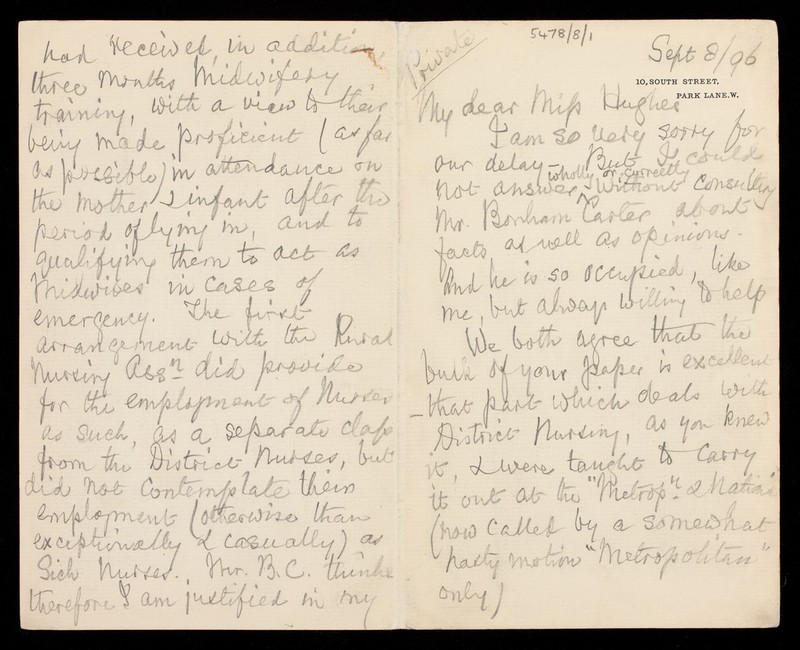 had received, in addition
three months Midwifery
training, with a view to their
being made proficient (as far
as possible) in attendance on
the mother & infant after the
period of lying in, and to
qualifying them to act as
Midwives in cases of
emergency. The first
arrangement with the Rural
Nursing Assn did provide
for the employment of Nurses
as such, as a separate class
from the District Nurses, but
did not contemplate their
employment (otherwise than
exceptionally & casually) as
Sick Nurses. Mr. B.C. thinks
therefore I am justified in my
Private
5478/8/1
Sept 8/96
10, SOUTH STREET,
PARK LANE. W.
My dear Miss Hughes
I am so very sorry for
our delay – But I could
not answer wholly or correctly without consulting
Mr. Bonham Carter about
facts as well as opinions.
And he is so occupied, like
me, but always willing to help
We both agree that the
bulk of your paper is excellent
– that part which deals with
District Nursing, as you knew
it, & were taught to carry
it out at the "Metropn. & Nation
(now called by a somewhat
party motion "Metropolitan"
only)